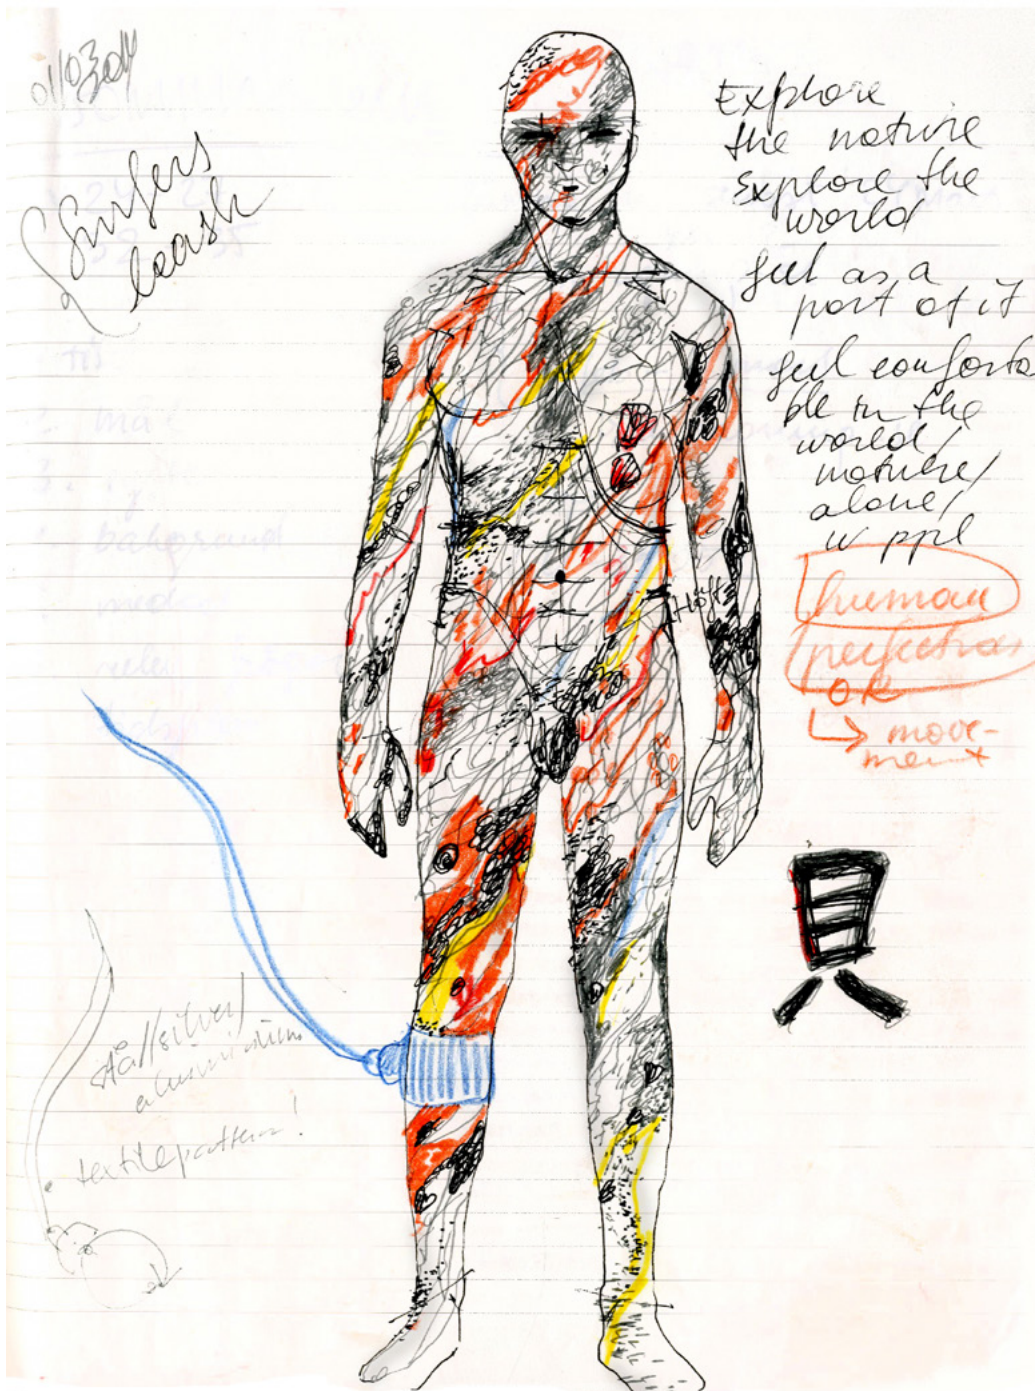 Surfers
leash
Explore
the nature
explore the
world
feel as a
part of it
feel comforta
ble in the
world/
nature/
alone/
w ppl
human
perfection
OR
↳ move-
ment
Höft
貝
stål/silver/
aluminium
textilepattern!